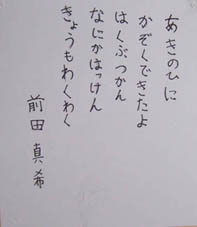 あきのひに
かぞくできたよ
はくぶつかん
なにがはっけん
きょうもわくわく
前田真希